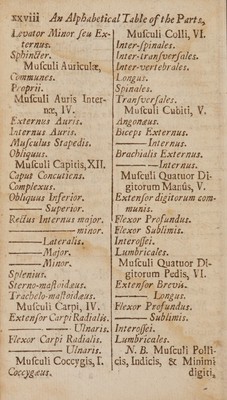 xxviii An Alphabetical Table of the Parts,
Levator Minor ſeu Ex-
ternus.
Sphincter.
Muſculi Auriculæ,
Communes.
Proprii.
Muſculi Auris Inter-
næ, IV.
Externus Auris.
Internus Auris.
Muſculus Stapedis.
Obliquus.
Muſculi Capitis, XII.
Caput Concutiens.
Complexus.
Obliquus Inferior.
——— Superior.
Rectus Internus major.
——— minor.
———Lateralis.
———Major.
———Minor.
Splenius.
Sterno-maſtoidæus.
Trachelo-maſtoidæus.
Muſculi Carpi, IV.
Extenſor Carpi Radialis.
——— Ulnaris.
Flexor Carpi Radialis.
——— Ulnaris.
Muſculi Coccygis, I.
Coccygæus.
Muſculi Colli, VI.
Inter-ſpinales.
Inter-tranſverſales.
Inter-vertebrales.
Longus.
Spinales.
Tranſverſales.
Muſculi Cubiti, V.
Angonæus.
Biceps Externus.
———Internus.
Brachialis Externus.
———Internus.
Muſculi Quatuor Di-
gitorum Manûs, V.
Extenſor digitorum com-
munis.
Flexor Profundus.
Flexor Sublimis.
Interoſſei.
Lumbricales.
Muſculi Quatuor Di-
gitorum Pedis, VI.
Extenſor Brevis.
——— Longus.
Flexor Profundus.
——— Sublimis.
Interoſſei.
Lumbricales.
N. B. Muſculi Polli-
cis, Indicis, & Minimi
digiti,